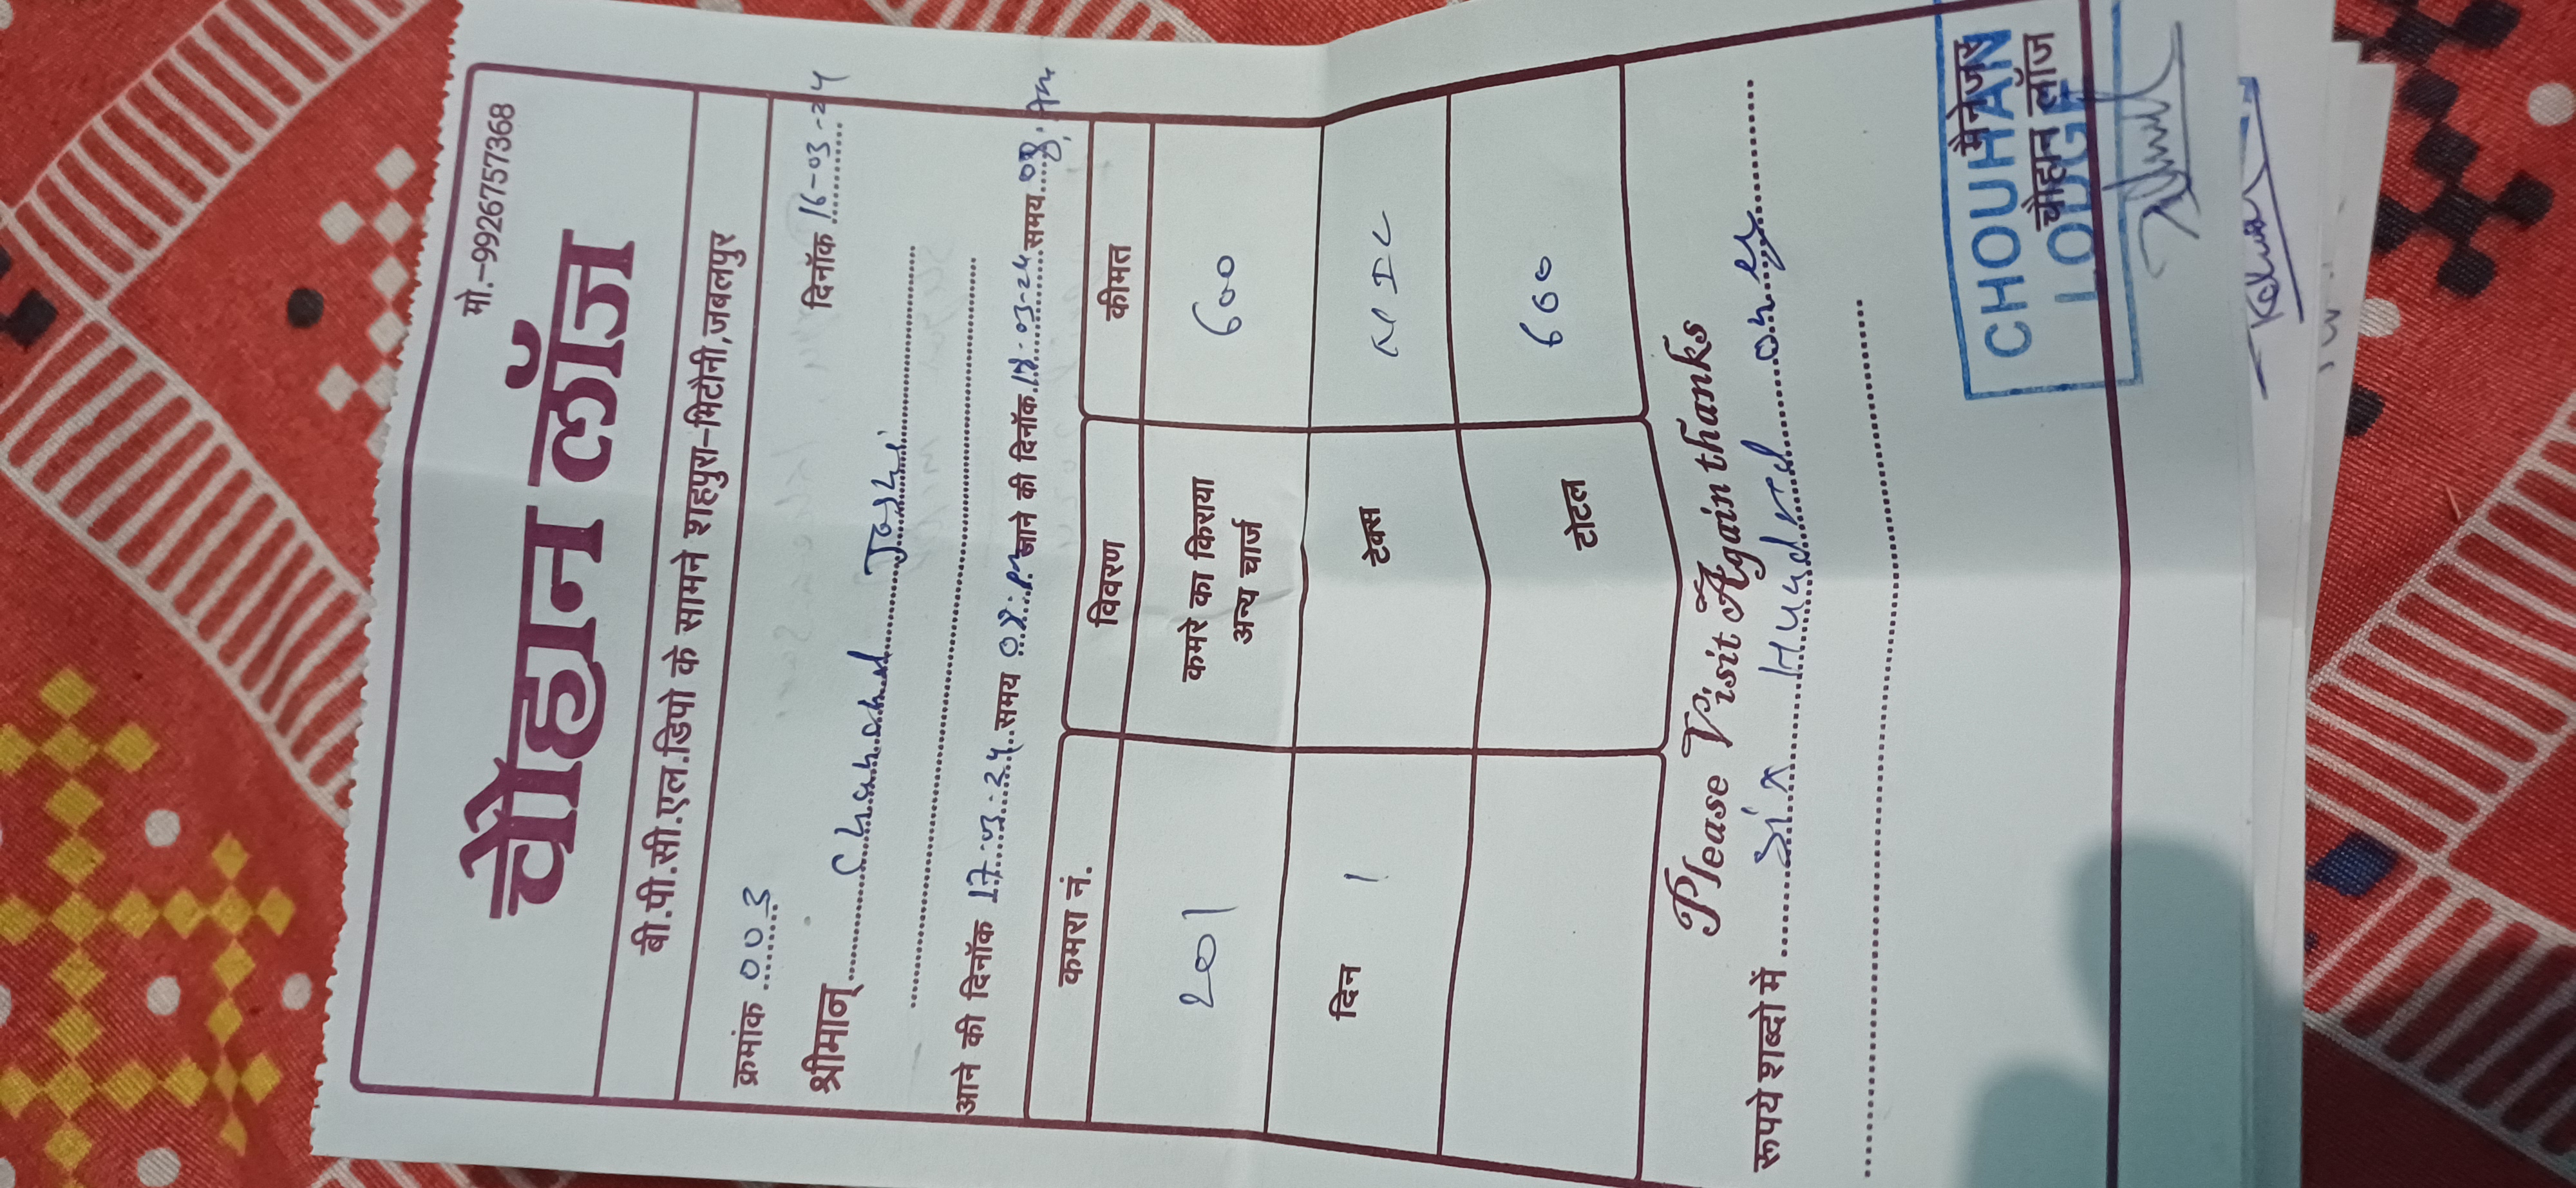 मो.-9926757368
चौहान लॉज
बी.पी.सी.एल.डिपो के सामने शहपुरा-भिटौनी,जबलपुर
क्रमांक 003 दिनॉक 16-03-24
श्रीमान् Joshi
आने की दिनॉक 17-03-24 समय 08:PM जाने की दिनॉक 18-03-24 समय 08:AM
कमरा नं. विवरण कीमत
201 कमरे का किराया 600
अन्य चार्ज
दिन 1 टेक्स NIL
टोटल 600
Please Visit Again thanks
रूपये शब्दो में Six Hundred only
मैनेजर
चौहान लॉज
CHOUHAN
LODGE